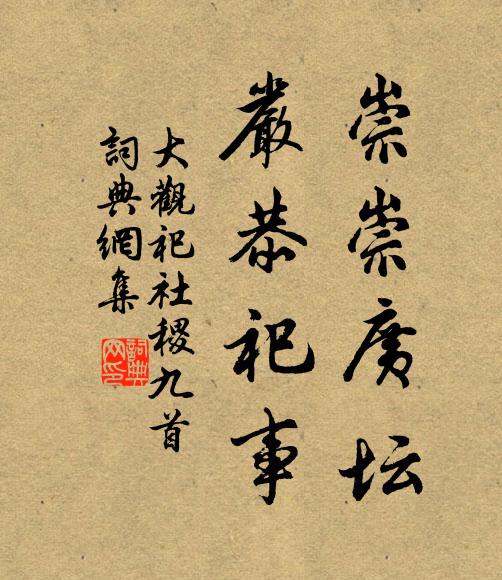 崇崇广坛
嚴恭祀事
大觀祀社稷九首
詞典網集
詞典網印